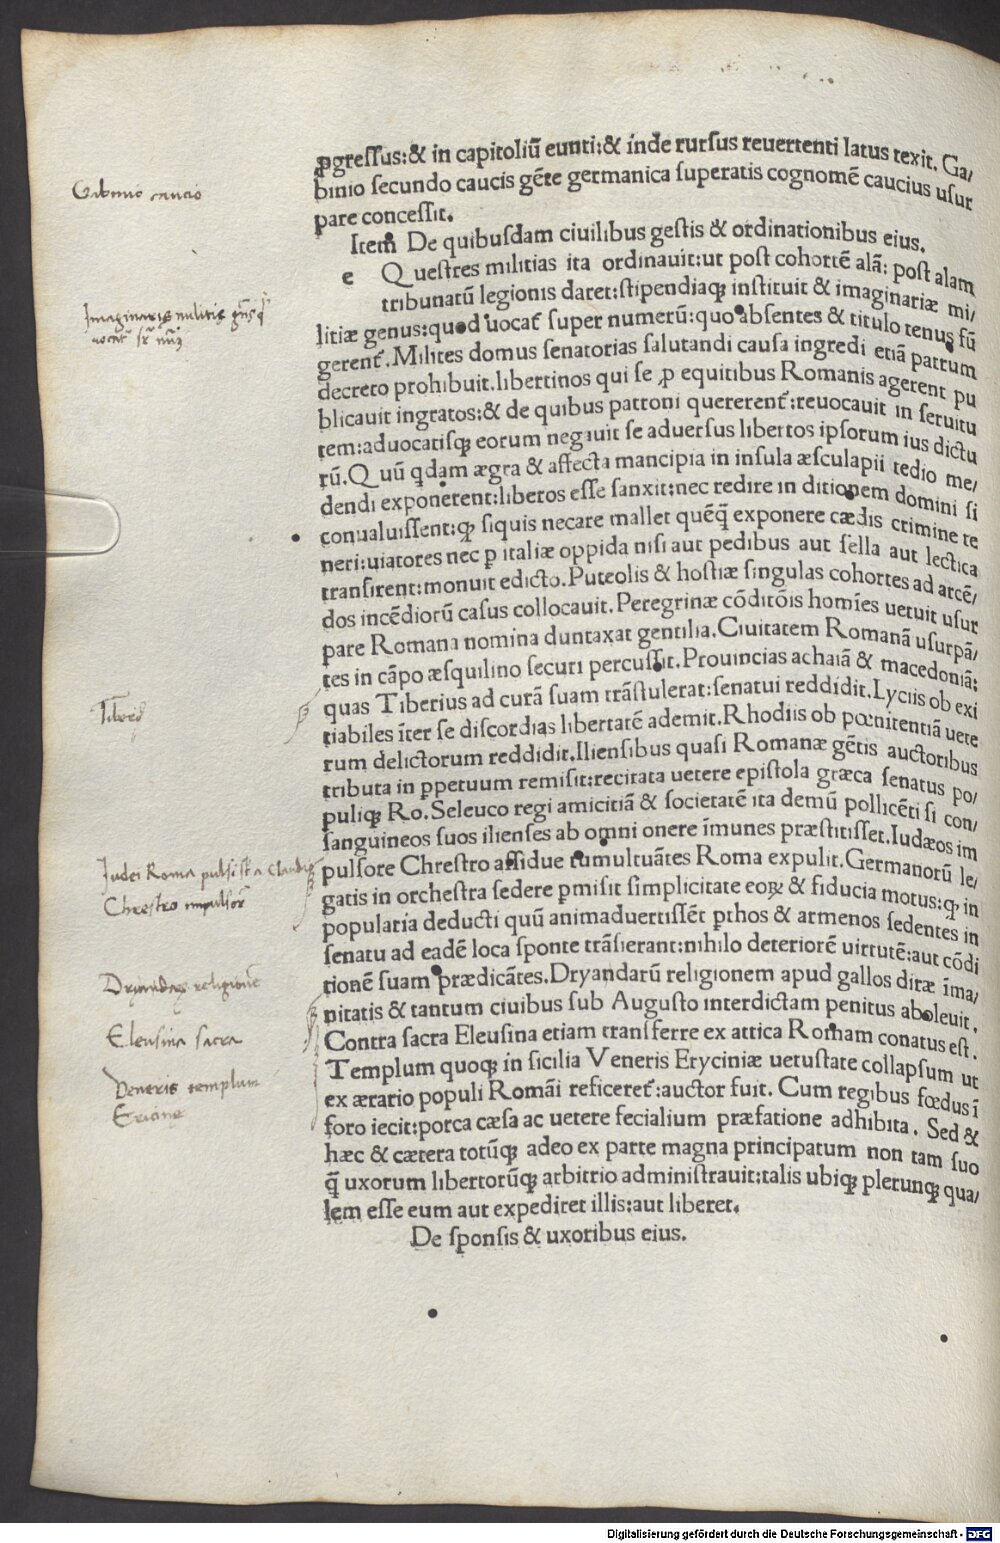 Gabinio caucio
ꝓgreſſus:& in capitoliū eunti:& inde rurſus reuertenti latus texit. Ga/
binio ſecundo caucis gēte germanica ſuperatis cognomē caucius uſur
pare conceſſit.
Item De quibuſdam ciuilibus geſtis & ordinationibus eius.
e Queſtres militias ita ordinauit:ut poſt cohortē alā: poſt alam
tribunatū legionis daret:ſtipendiaqȝ inſtituit & imaginariæ mi/
Imaginaris militię
litiæ genus:quod uocat̄ ſuper numerū:quo abſentes & titulo tenus fū
gerent̄. Milites domus ſenatorias ſalutandi cauſa ingredi etiā patrum
decreto prohibuit.libertinos qui ſe ꝓ equitibus Romanis agerent pu
blicauit ingratos:& de quibus patroni quererent̄:reuocauit in ſeruitu
tem:aduocatiſqȝ eorum negauit ſe aduerſus libertos ipſorum ius dictu
rū.Quū qdam ægra & affecta mancipia in inſula æſculapii tedio me/
dendi exponerent:liberos eſſe ſanxit:nec redire in ditionem domini ſi
conualuiſſent:qȝ ſiquis necare mallet quēq̄ exponere cædis crimine te
neri:uiatores nec ꝑ italiæ oppida niſi aut pedibus aut ſella aut lectica
tranſirent:monuit edicto.Puteolis & hoſtiæ ſingulas cohortes ad arcē/
dos incēdiorū caſus collocauit.Peregrinæ cōditōis homīes uetuit uſur
pare Romana nomina duntaxat gentilia.Ciuitatem Romanā uſurpā/
tes in cāpo æſquilino ſecuri percuſſit.Prouincias achaiā & macedoniā:
Tiberius
quas Tiberius ad curā ſuam trāſtulerat:ſenatui reddidit.Lyciis ob exi
tiabiles īter ſe diſcordias libertatē ademit.Rhodiis ob pœnitentiā uete
rum delictorum reddidit.Ilienſibus quaſi Romanæ gētis auctoribus
tributa in ꝑpetuum remiſit:recitata uetere epiſtola græca ſenatus po/
puliqȝ Ro.Seleuco regi amicitiā & ſocietatē ita demū pollicēti ſi con/
ſanguineos ſuos ilienſes ab omni onere īmunes præſtitiſſet.Iudæos im
Iudei Roma pulsi st a Claudio
Chrestro impulsor̄
pulſore Chreſtro aſſidue tumultuātes Roma expulit.Germanorū le/
gatis in orcheſtra ſedere ꝑmiſit ſimplicitate eoꝝ & fiducia motus:qȝ in
popularia deducti quū animaduertiſſēt ꝑthos & armenos ſedentes in
ſenatu ad eadē loca ſponte trāſierant:nihilo deteriorē uirtutē:aut cōdi
tionē ſuam prædicātes.Dryandarū religionem apud gallos diræ īma/
Dryandaꝝ religionē
nitatis & tantum ciuibus ſub Auguſto interdictam penitus aboleuit.
Eleusina sacra
Contra ſacra Eleuſina etiam transferre ex attica Romam conatus eſt.
Veneris templum
Ericinę
Templum quoqȝ in ſicilia Veneris Eryciniæ uetuſtate collapſum ut
ex ærario populi Romāi reficeret̄:auctor fuit. Cum regibus fœdus ī
foro iecit:porca cæſa ac uetere fecialium præfatione adhibita. Sed &
hæc & cætera totūqȝ adeo ex parte magna principatum non tam ſuo
q̄ uxorum libertorūqȝ arbitrio adminiſtrauit:talis ubiqȝ plerunqȝ qua/
lem eſſe eum aut expediret illis:aut liberet.
De ſponſis & uxoribus eius.
Digitalisierung gefördert durch die Deutsche Forschungsgemeinschaft - DFG